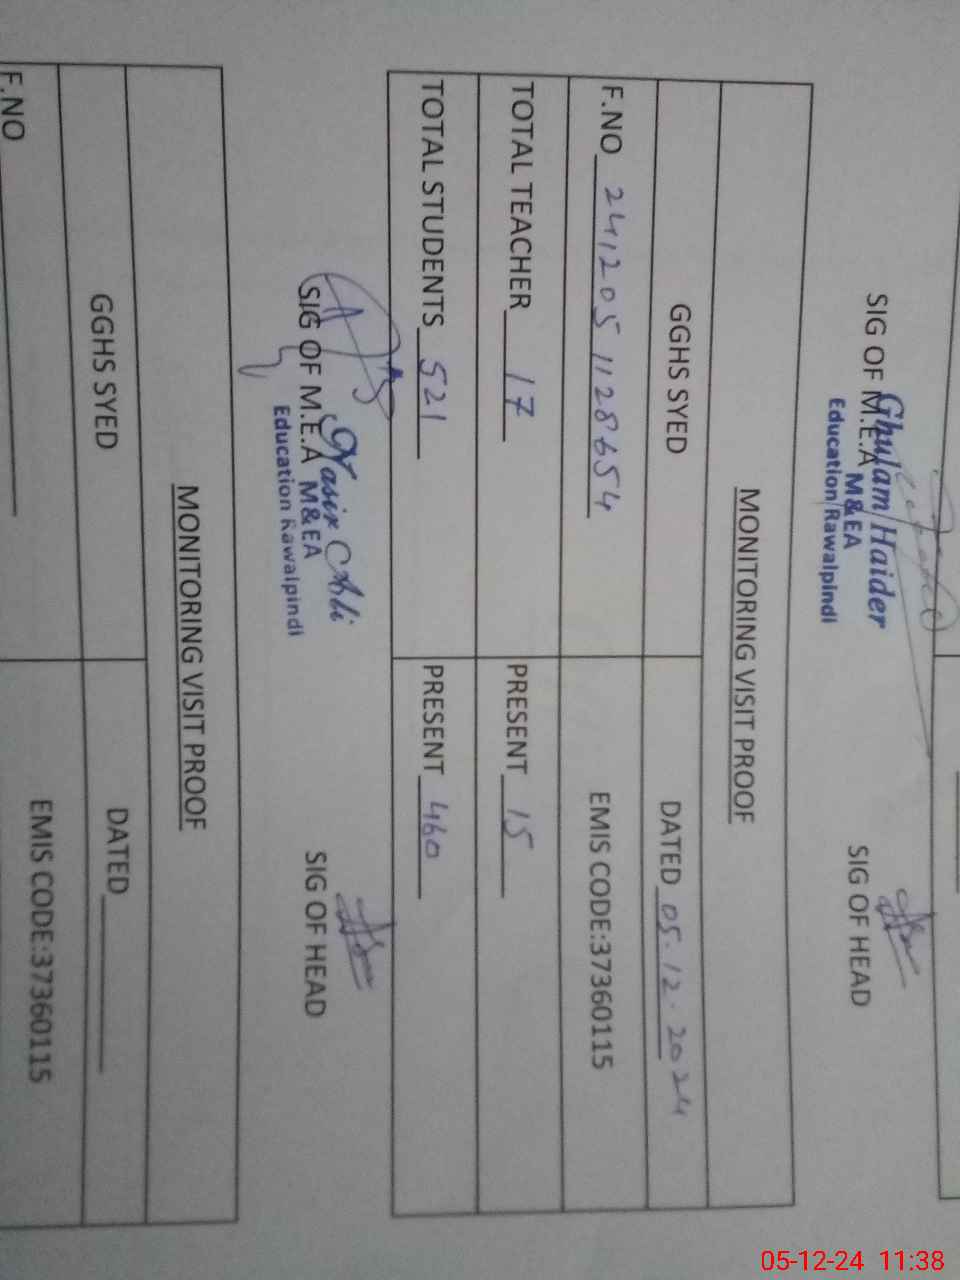 SIG OF M.E.A SIG OF HEAD
Ghulam Haider
M&EA
Education Rawalpindi
MONITORING VISIT PROOF
GGHS SYED DATED 05.12.2024
F.NO 241205 1128654 EMIS CODE:37360115
TOTAL TEACHER 17 PRESENT 15
TOTAL STUDENTS 521 PRESENT 460
Nasir Ali
SIG OF M.E.A SIG OF HEAD
M&EA
Education Rawalpindi
MONITORING VISIT PROOF
GGHS SYED DATED
F.NO EMIS CODE:37360115
05-12-24 11:38